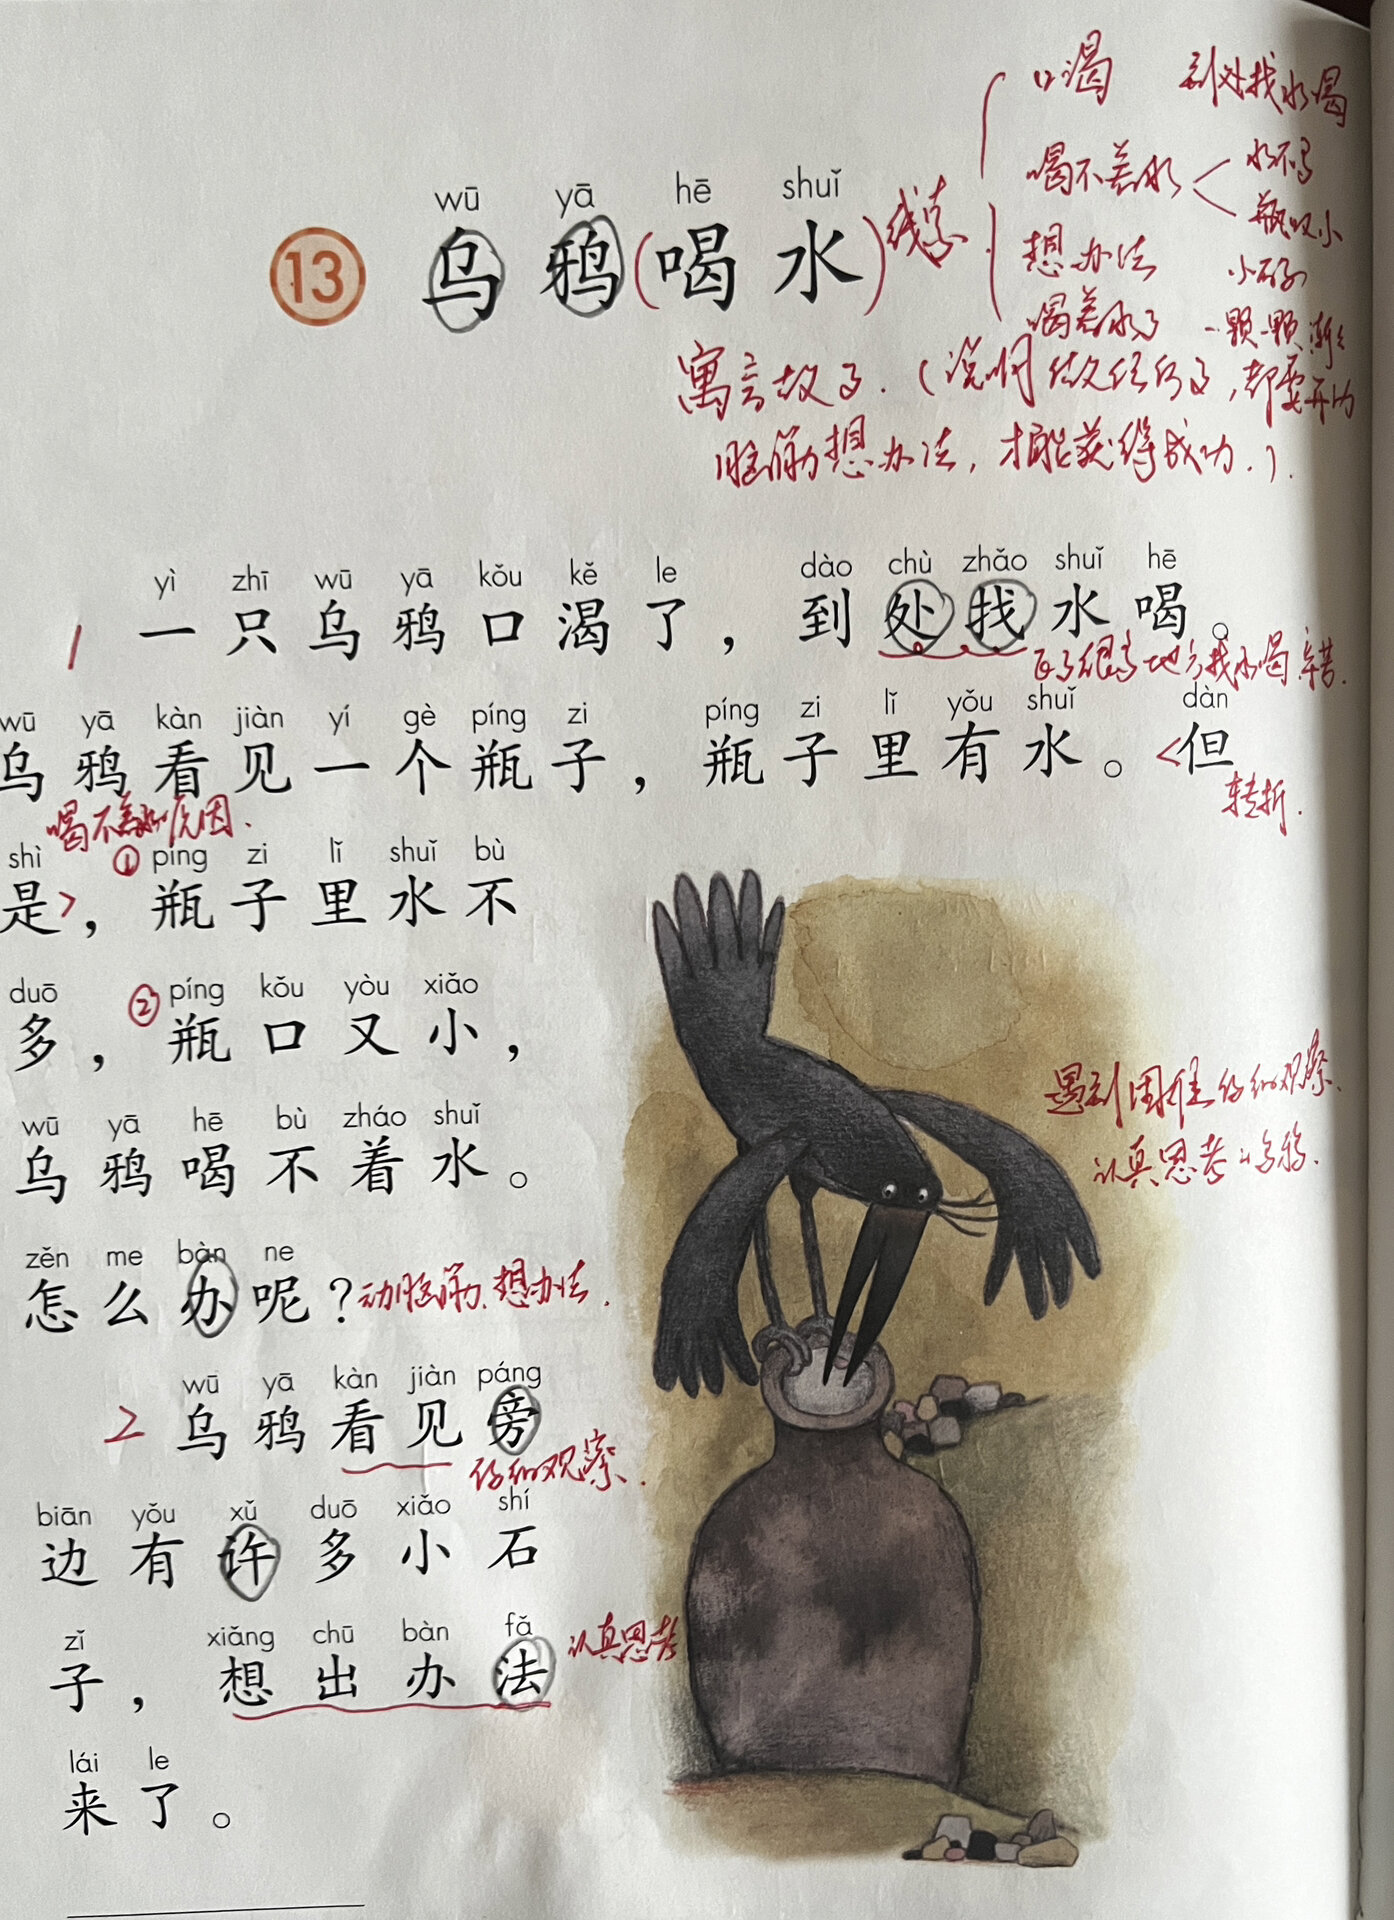 口渴 到处找水喝
喝不着水 水不多
瓶口小
wū yā hē shuǐ
13 乌鸦(喝水) 线索
想办法 小石子
喝着水了 一颗一颗 渐渐
寓言故事.(说明做任何事,都要开动
脑筋想办法,才能获得成功.).
yì zhī wū yā kǒu kě le dào chù zhǎo shuǐ hē
1 一只乌鸦口渴了，到处找水喝。
很多地方找水喝.辛苦.
wū yā kàn jiàn yí gè píng zi píng zi lǐ yǒu shuǐ dàn
乌鸦看见一个瓶子，瓶子里有水。<但
喝不着水原因. 转折.
shì ① píng zi lǐ shuǐ bù
是>，瓶子里水不
duō ② píng kǒu yòu xiǎo
多，瓶口又小，
wū yā hē bù zháo shuǐ
乌鸦喝不着水。
遇到困难仔细观察.
认真思考的乌鸦.
zěn me bàn ne
怎么办呢？动脑筋、想办法.
wū yā kàn jiàn páng
2 乌鸦看见旁
仔细观察.
biān yǒu xǔ duō xiǎo shí
边有许多小石
zǐ xiǎng chū bàn fǎ
子，想出办法 认真思考
lái le
来了。